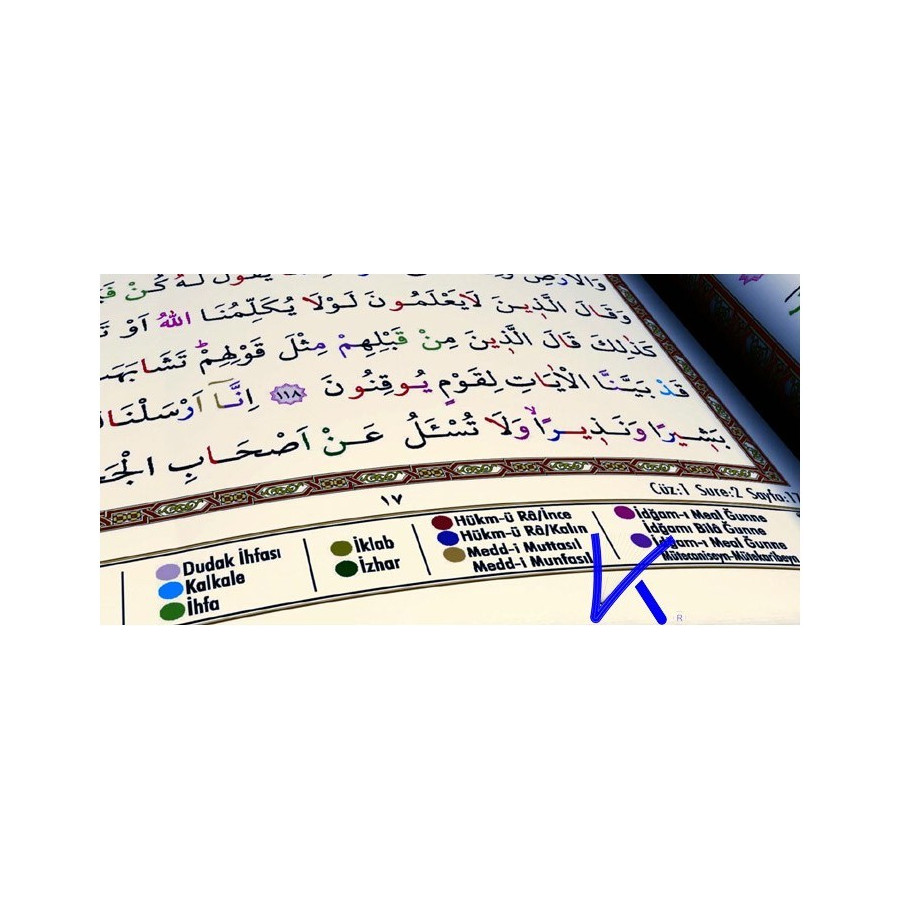 وَالْاَرْضِ يَقُولُ لَهُ كُنْ
وَقَالَ الَّذ۪ينَ لَايَعْلَمُونَ لَوْلَا يُكَلِّمُنَا اللّٰهُ اَوْ
كَذٰلِكَ قَالَ الَّذ۪ينَ مِنْ قَبْلِهِمْ مِثْلَ قَوْلِهِمْۜ تَشَابَهَتْ
قَدْ بَيَّنَّا الْاٰيَاتِ لِقَوْمٍ يُوقِنُونَ ١١٨ اِنَّٓا اَرْسَلْنَاكَ
بَش۪يرًا وَنَذ۪يرًاۙ وَلَا تُسْـَٔلُ عَنْ اَصْحَابِ
١٧
Cüz:1 Sure:2 Sayfa:17
Dudak İhfası
Kalkale
İhfa
İklab
İzhar
Hükm-ü Râ/İnce
Hükm-ü Râ/Kalın
Medd-i Muttasıl
Medd-i Munfasıl
İdğam-ı Meal Ğunne
İdğamı Bilâ Ğunne
İdğam-ı Meal Ğunne
Mütecaniseyn-Mütekaribeyn
R